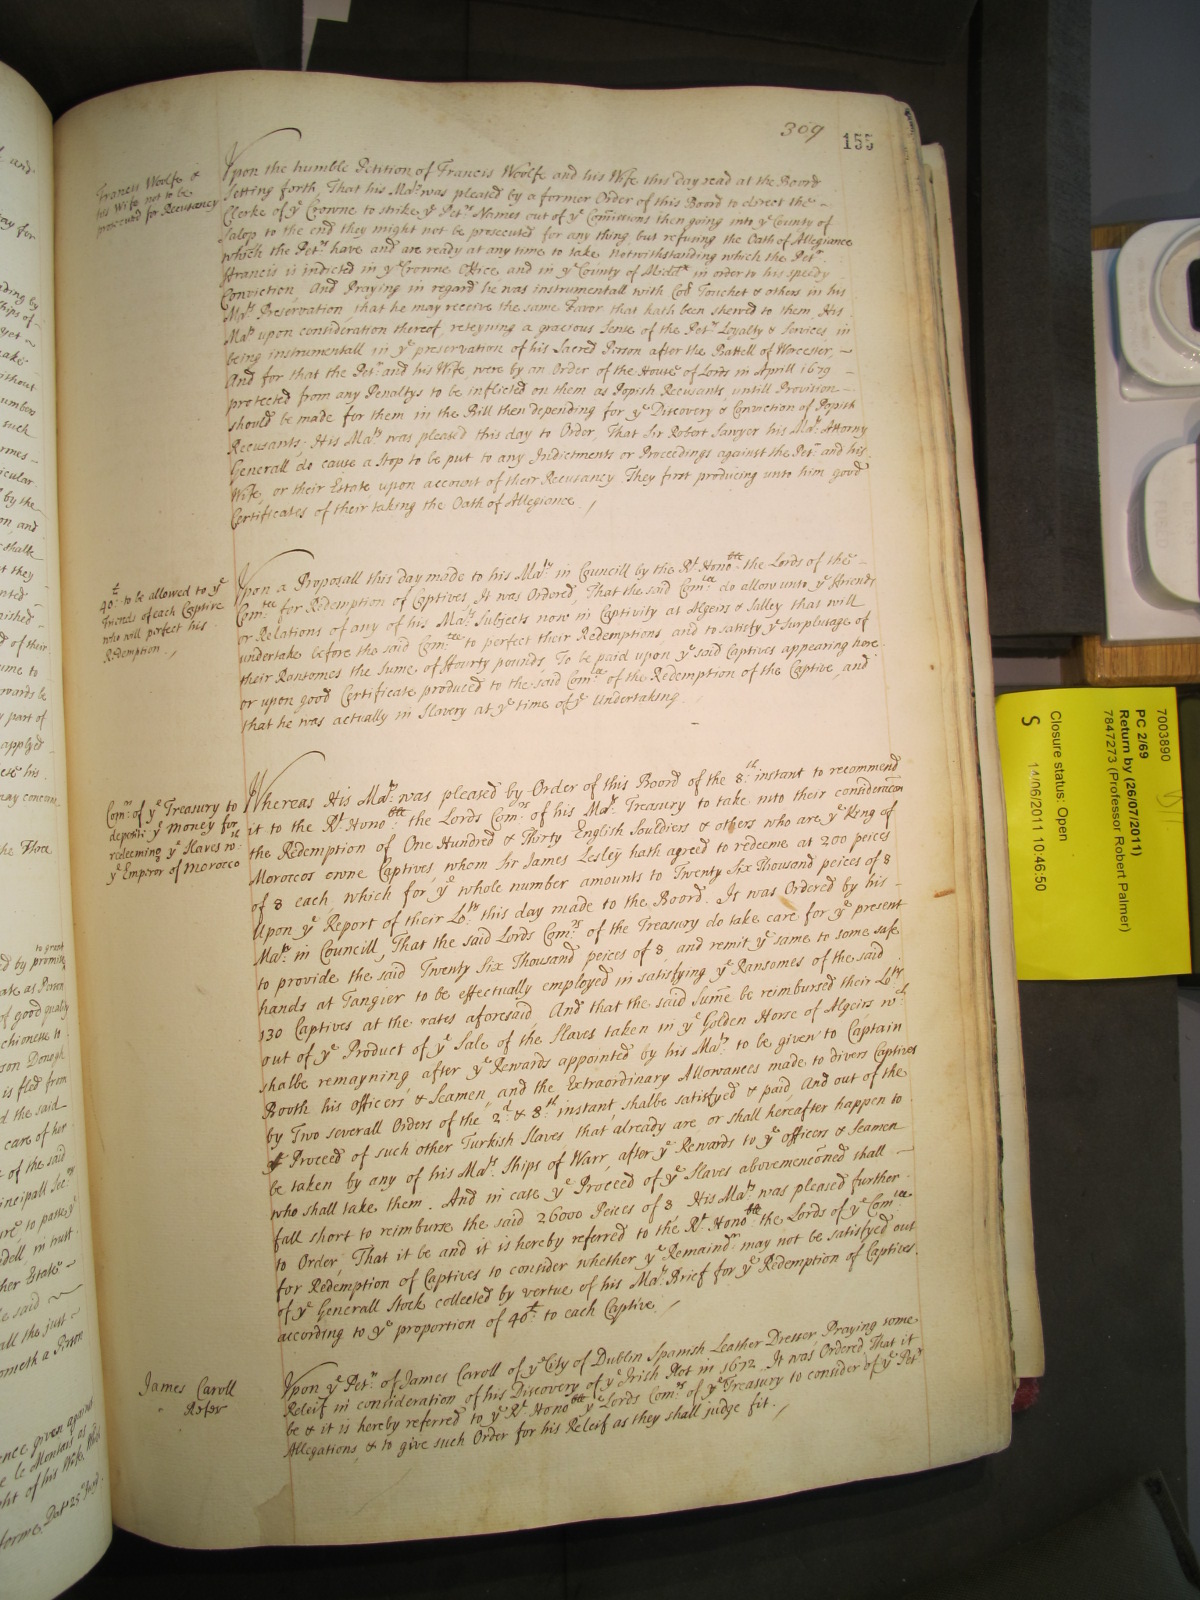 309
155
Francis Woolfe &
his Wife not to be
prosecuted for Recusancy
Upon the humble Petition of Francis Woolfe and his Wife this day read at the Board
Setting forth, That his Ma.ty was pleased by a former Order of this Board to direct the –
Clerke of ye Crowne to strike ye Pet.rs Names out of ye Com̃issions then going into ye County of
Salop to the end they might not be prosecuted for any thing but refusing the Oath of Allegiance
which the Pet.rs have and are ready at any time to take Notwithstanding which the Pet.r
Francis is indicted in ye Crowne Office and in ye County of Midd.x in order to his speedy
Conviction. And Praying in regard he was instrumentall with Coll Touchet & others in his
Ma.ts Preservation, that he may receive the same Favor that hath been shewed to them. His
Ma.ty upon consideration thereof, reteyning a gracious Sense of the Pet.rs Loyalty & Services in
being instrumentall in ye preservation of his Sacred Person after the Battell of Worcester, –
And for that the Pet.r and his Wife were by an Order of the House of Lords in Aprill 1679 –
protected from any Penaltys to be inflicted on them as Popish Recusants, untill Provision –
should be made for them in the Bill then depending for ye Discovery & Conviction of Popish
Recusants; His Ma.ty was pleased this day to Order, That Sir Robert Sawyer his Ma.ts Attorny
Generall do cause a Stop to be put to any Indictments or Proceedings against the Pet.r and his
Wife, or their Estate, upon account of their Recusancy They first producing unto him good
Certificates of their taking the Oath of Allegiance /
40.£ to be allowed to ye
friends of each Captive
who will perfect his
Redemption. /
Upon a Proposall this day made to his Ma.ty in Councill by the Rt. Hono.ble the Lords of the –
Com.tee for Redemption of Captives, It was Ordered, That the said Com.tee do allow unto ye Friends
or Relations of any of his Ma.ts Subjects now in Captivity at Algeirs & Salley that will
undertake before the said Com.tee to perfect their Redemptions, and to satisfy ye Surplusage of
their Ransomes the Sume of Fourty pounds To be paid upon ye said Captives appearing here
or upon good Certificate produced to the said Com.tee of the Redemption of the Captive, and
that he was actually in Slavery at ye time of ye Undertaking
Com.rs of ye Treasury to
deposit ye money for
redeeming ye Slaves wth
ye Emperor of Morocco
Whereas His Ma.ty was pleased by Order of this Board of the 8.th instant to recommend
it to the Rt. Hono.ble the Lords Com.rs of his Ma.ts Treasury to take into their consideration
the Redemption of One Hundred & Thirty English Souldiers & others who are ye King of
Moroccos owne Captives, whom Sir James Lesley hath agreed to redeeme at 200 peices
of 8 each, which for ye whole number amounts to Twenty Six Thousand peices of 8
Upon ye Report of their Lo.ps this day made to the Board. It was Ordered by his –
Ma.ty in Councill, That the said Lords Com.rs of the Treasury do take care for ye present
to provide the said Twenty Six Thousand peices of 8, and remit ye same to some safe
hands at Tangier to be effectually employed in satisfying ye Ransomes of the said
130 Captives at the rates aforesaid And that the said Sum̃e be reimbursed their Lo.ps
out of ye Product of ye Sale of the Slaves taken in ye Golden Horse of Algeirs wch
shalbe remayning after ye Rewards appointed by his Ma.ty to be given to Captain
Booth his officers & Seamen, and the Extraordinary Allowances made to divers Captives
by Two severall Orders of the 2.d & 8.th instant, shalbe satisfyed & paid, And out of the
Proceed of such other Turkish Slaves that already are or shall hereafter happen to
be taken by any of his Ma.ts Ships of Warr, after ye Rewards to ye officers & Seamen
who shall take them. And in case ye Proceed of ye Slaves abovemenc̃oned shall –
fall short to reimburse the said 26000 Peices of 8, His Ma.ty was pleased further
to Order, That it be and it is hereby referred to the Rt. Hono.ble the Lords of ye Com.tee
for Redemption of Captives to consider whether ye Remaind.r may not be satisfyed out
of ye Generall Stock collected by vertue of his Ma.ts Brief for ye Redemption of Captives
according to ye proportion of 40.£ to each Captive /
James Caroll
Refer
Upon ye Pet.n of James Caroll of ye City of Dublin Spanish Leather Dresser, Praying some
Releif in consideration of his Discovery of ye Irish Plot in 1672. It was Ordered That it
be & it is hereby referred to ye Rt. Hono.ble ye Lords Com.rs of ye Treasury to consider of ye Pet.rs
Allegations, & to give such Order for his Releif as they shall judge fit. /
7003890
PC 2/69
Return by (26/07/2011)
7847273 (Professor Robert Palmer)
Closure status: Open
S 14/06/2011 10:46:50